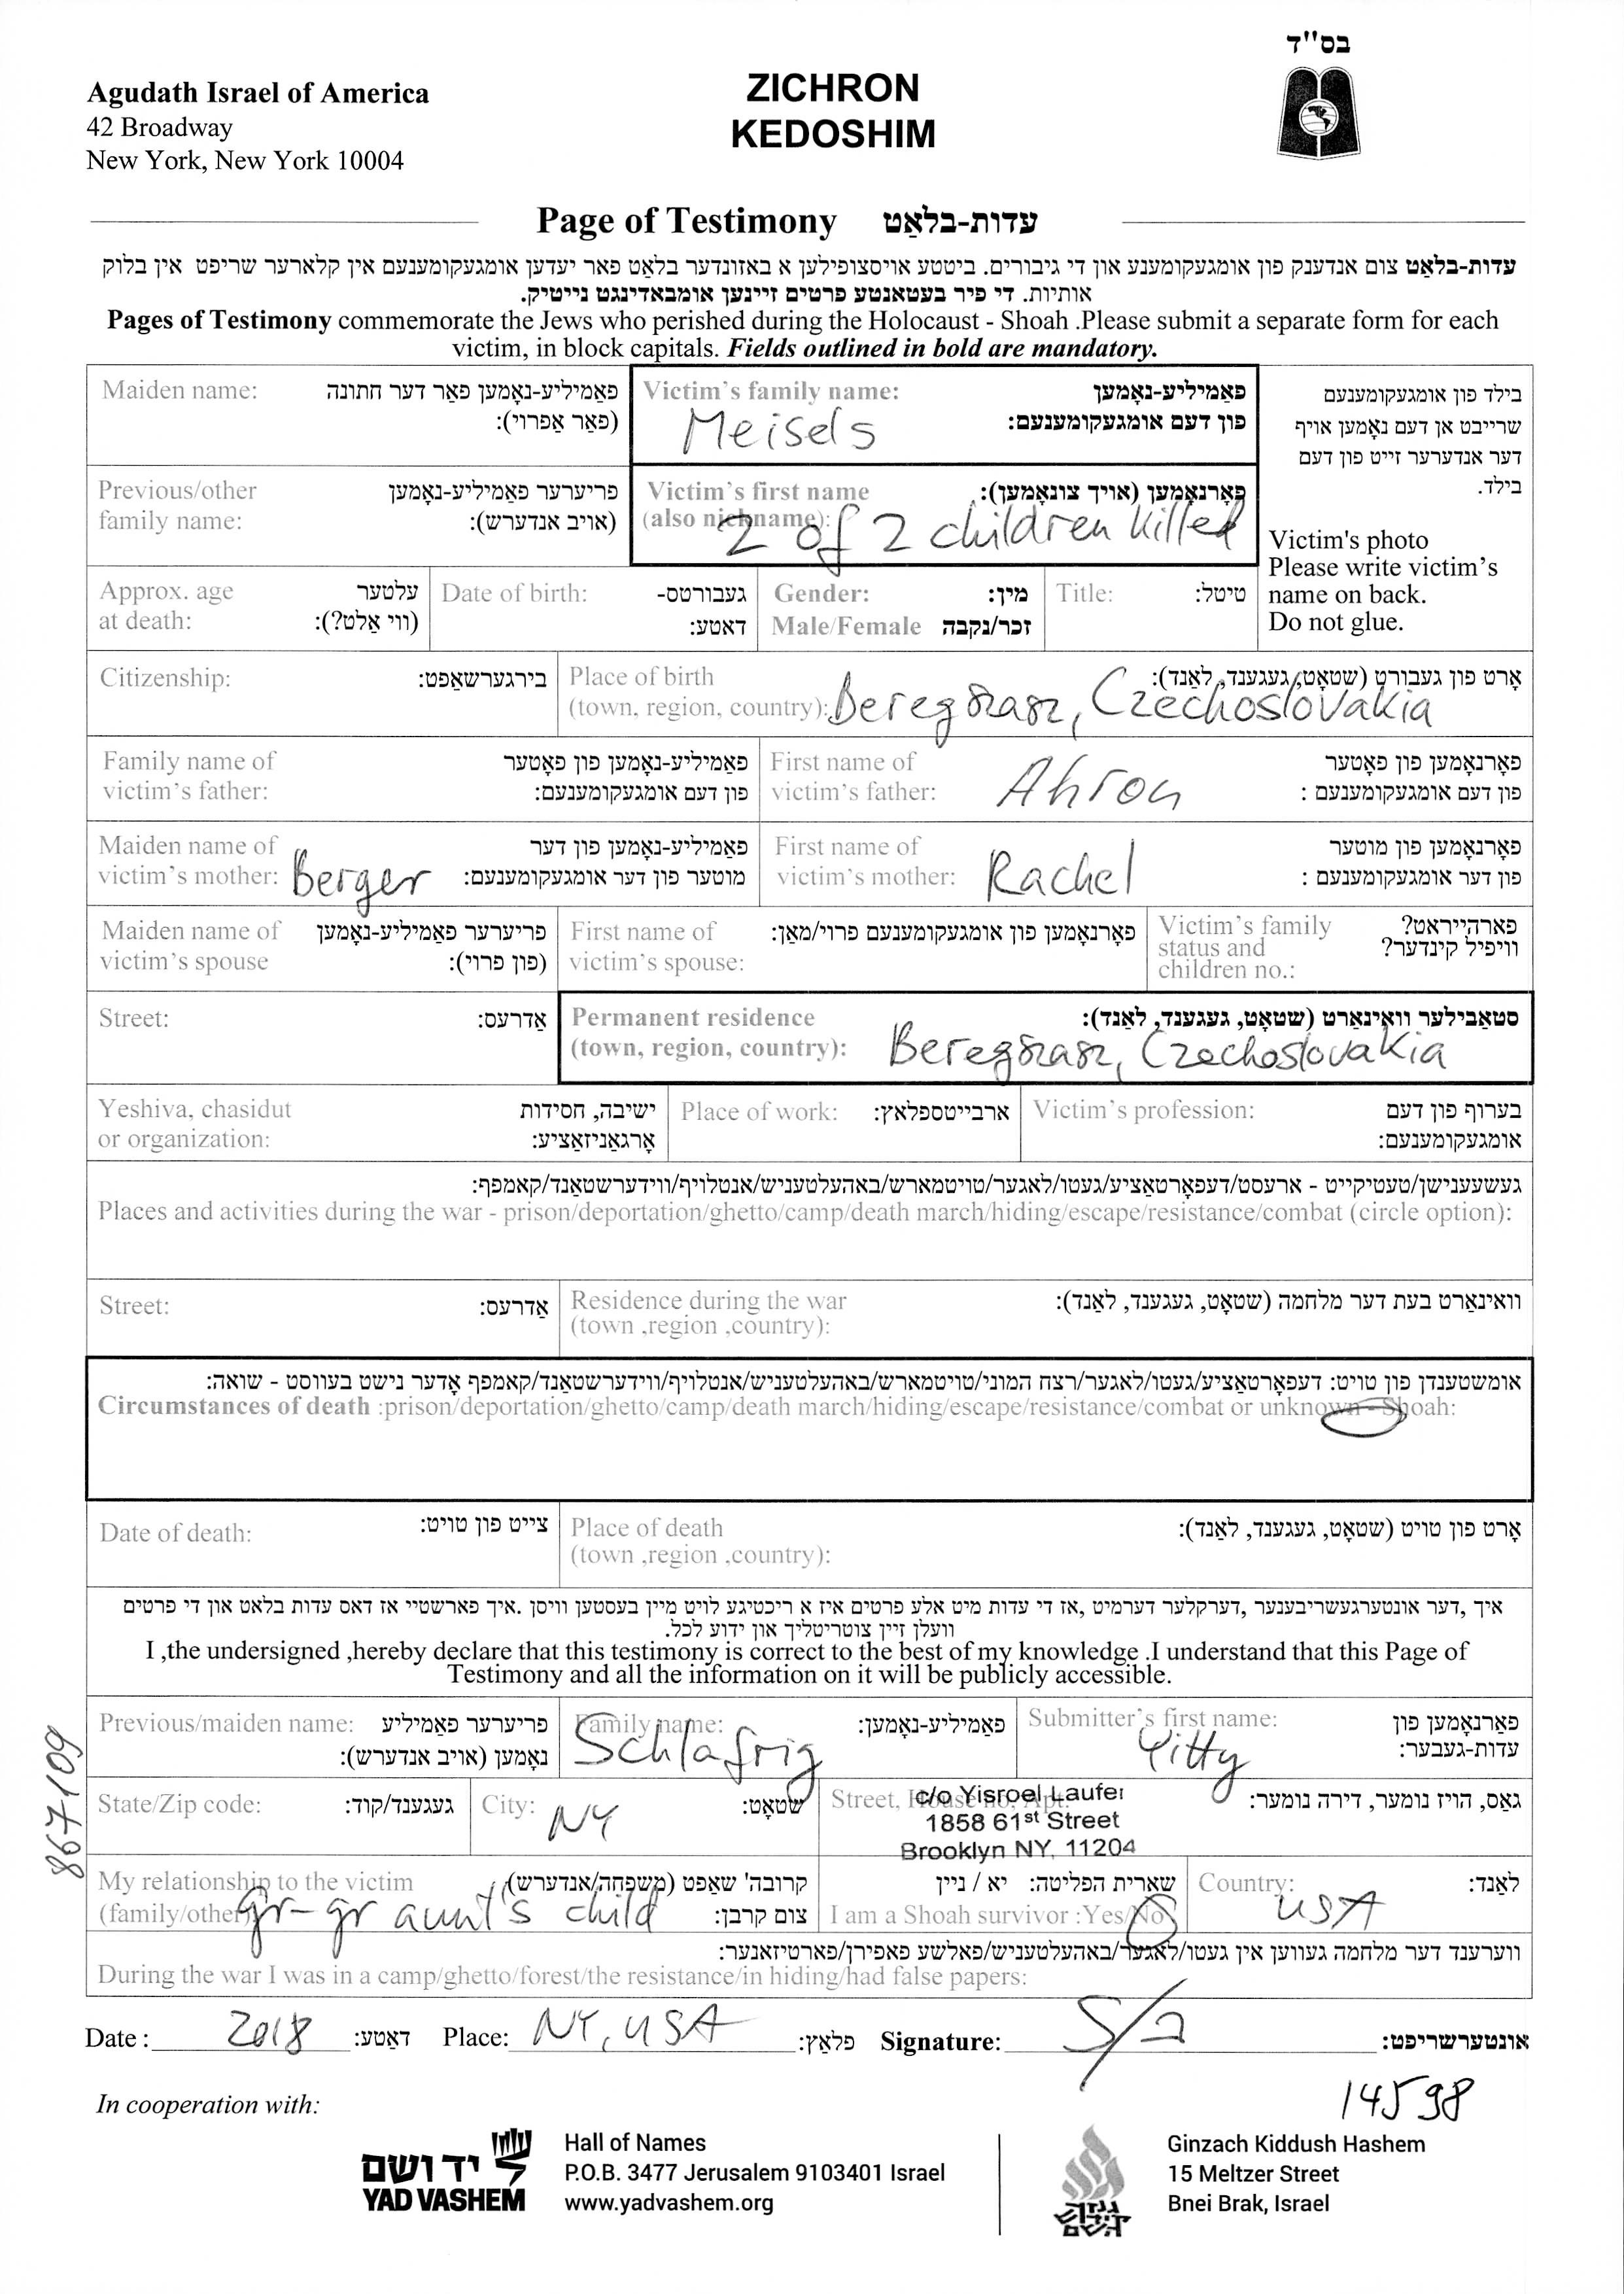 בס"ד
Agudath Israel of America
42 Broadway
New York, New York 10004
ZICHRON
KEDOSHIM
Page of Testimony עדות-בלאַט
עדות-בלאַט צום אנדענק פון אומגעקומענע און די גיבורים. ביטטע אויסצופילען א באזונדער בלאט פאר יעדען אומגעקומענעם אין קלארער שריפט אין בלוק
אותיות. די פיר בעטאנטע פרטים זיינען אומבאדינגט נייטיק.
Pages of Testimony commemorate the Jews who perished during the Holocaust - Shoah .Please submit a separate form for each
victim, in block capitals. Fields outlined in bold are mandatory.
Maiden name: פאַמיליע-נאָמען פאר דער חתונה
(פאַר אַפרוי):
Victim's family name: פאַמיליע-נאָמען
פון דעם אומגעקומענעם:
Meisels
בילד פון אומגעקומענעם
שרייבט אן דעם נאָמען אויף
דער אנדערער זייט פון דעם
בילד.
Victim's photo
Please write victim's
name on back.
Do not glue.
Previous/other פריערער פאַמיליע-נאָמען
family name: (אויב אנדערש):
Victim's first name פאָרנאָמען (אויך צונאָמען):
(also nickname):
2 of 2 children killed
Approx. age עלטער
at death: (ווי אַלט?):
Date of birth: געבורטס-
דאטע:
Gender: מין:
Male/Female זכר/נקבה
Title: טיטל:
Citizenship: בירגערשאַפט:
Place of birth אָרט פון געבורט (שטאָט, געגענד, לאַנד):
(town, region, country): Beregszasz, Czechoslovakia
Family name of פאַמיליע-נאָמען פון פאָטער
victim's father: פון דעם אומגעקומענעם:
First name of פאָרנאָמען פון פאָטער
victim's father: Ahron פון דעם אומגעקומענעם :
Maiden name of פאַמיליע-נאָמען פון דער
victim's mother: Berger מוטער פון דער אומגעקומענעם:
First name of פאָרנאָמען פון מוטער
victim's mother: Rachel פון דער אומגעקומענעם :
Maiden name of פריערער פאַמיליע-נאָמען
victim's spouse (פון פרוי):
First name of פאָרנאָמען פון אומגעקומענעם פרוי/מאַן:
victim's spouse:
Victim's family פארהייראט?
status and וויפיל קינדער?
children no.:
Street: אַדרעס:
Permanent residence סטאַבילער וואוינאָרט (שטאָט, געגענד, לאַנד):
(town, region, country): Beregszasz, Czechoslovakia
Yeshiva, chasidut ישיבה, חסידות
or organization: אָרגאַניזאַציע:
Place of work: ארבייטספלאץ:
Victim's profession: בערוף פון דעם
אומגעקומענעם:
געשעענישן/טעטיקייט - ארעסט/דעפאָרטאַציע/געטו/לאגער/טויטמארש/באהעלטעניש/אנטלויף/ווידערשטאַנד/קאמפף:
Places and activities during the war - prison/deportation/ghetto/camp/death march/hiding/escape/resistance/combat (circle option):
Street: אַדרעס:
Residence during the war וואוינארט בעת דער מלחמה (שטאָט, געגענד, לאַנד):
(town ,region ,country):
אומשטענדן פון טויט: דעפאָרטאַציע/געטו/לאגער/רצח המוני/טויטמארש/באהעלטעניש/אנטלויף/ווידערשטאַנד/קאמפף אָדער נישט בעוווסט - שואה:
Circumstances of death :prison/deportation/ghetto/camp/death march/hiding/escape/resistance/combat or unknown - Shoah:
Date of death: צייט פון טויט:
Place of death אָרט פון טויט (שטאָט, געגענד, לאַנד):
(town ,region ,country):
איך ,דער אונטערגעשריבענער ,דערקלער דערמיט ,אז די עדות מיט אלע פרטים איז א ריכטיגע לויט מיין בעסטען וויסן .איך פארשטיי אז דאס עדות בלאט און די פרטים
וועלן זיין צוטריטליך און ידוע לכל.
I ,the undersigned ,hereby declare that this testimony is correct to the best of my knowledge .I understand that this Page of
Testimony and all the information on it will be publicly accessible.
Previous/maiden name: פריערער פאַמיליע
נאָמען (אויב אנדערש):
Family name: פאַמיליע-נאָמען:
Schlafrig
Submitter's first name: פאָרנאָמען פון
עדות-געבער:
Yitty
State/Zip code: געגענד/קוד:
City: NY שטאָט:
Street, House no, Apt.: גאַס, הויז נומער, דירה נומער:
c/o Yisroel Laufer
1858 61st Street
Brooklyn NY, 11204
My relationship to the victim קרובה' שאַפט (משפחה/אנדערש)
(family/other) gr-gr aunt's child צום קרבן:
שארית הפליטה: יא / ניין
I am a Shoah survivor :Yes/No
Country: לאַנד:
USA
ווערענד דער מלחמה געווען אין געטו/לאַגער/באהעלטעניש/פאלשע פאפירן/פארטיזאנער:
During the war I was in a camp/ghetto/forest/the resistance/in hiding/had false papers:
Date : 2018 דאטע: Place: NY, USA פלאַץ: Signature: S/ב אונטערשריפט:
867109
14598
In cooperation with:
יד ושם
YAD VASHEM
Hall of Names
P.O.B. 3477 Jerusalem 9103401 Israel
www.yadvashem.org
גנזך קידוש השם
Ginzach Kiddush Hashem
15 Meltzer Street
Bnei Brak, Israel